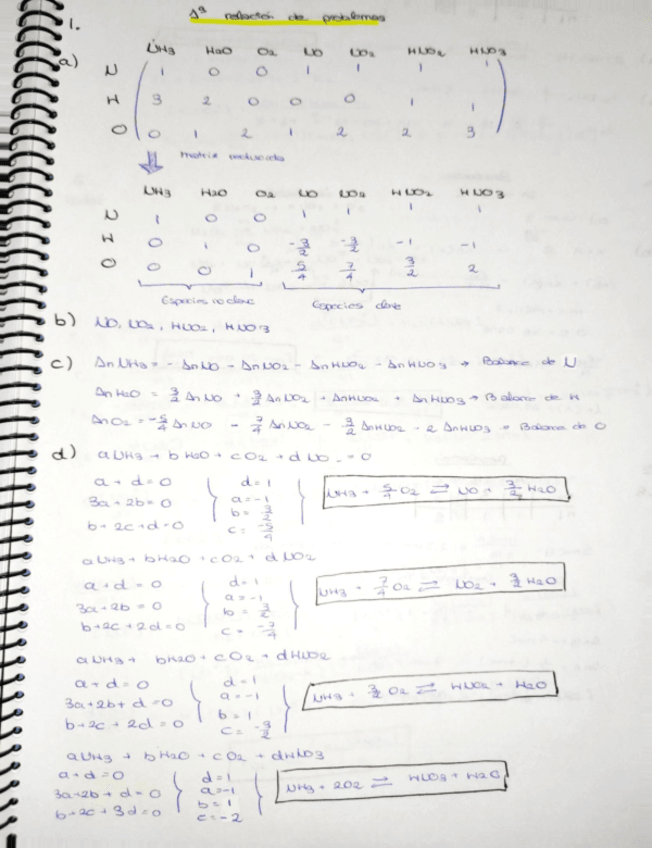 1ª relación de problemas
1.
a)
NH3 H2O O2 NO NO2 HNO2 HNO3
N 1 0 0 1 1 1 1
H 3 2 0 0 0 1 1
O 0 1 2 1 2 2 3
matriz reducida
NH3 H2O O2 NO NO2 HNO2 HNO3
N 1 0 0 1 1 1 1
H 0 1 0 -3/2 -3/2 -1 -1
O 0 0 1 5/4 7/4 3/2 2
Especies no clave Especies clave
b) NO, NO2, HNO2, HNO3
c) ΔnNH3 = - ΔnNO - ΔnNO2 - ΔnHNO2 - ΔnHNO3 → Balance de N
ΔnH2O = 3/2 ΔnNO + 3/2 ΔnNO2 + ΔnHNO2 + ΔnHNO3 → Balance de H
ΔnO2 = -5/4 ΔnNO - 7/4 ΔnNO2 - 3/2 ΔnHNO2 - 2 ΔnHNO3 → Balance de O
d) aNH3 + bH2O + cO2 + dNO = 0
a + d = 0 d = 1
3a + 2b = 0 a = -1
b + 2c + d = 0 b = 3/2
c = -5/4
NH3 + 5/4 O2 ⇌ NO + 3/2 H2O
aNH3 + bH2O + cO2 + dNO2
a + d = 0 d = 1
3a + 2b = 0 a = -1
b + 2c + 2d = 0 b = 3/2
c = -7/4
NH3 + 7/4 O2 ⇌ NO2 + 3/2 H2O
aNH3 + bH2O + cO2 + dHNO2
a + d = 0 d = 1
3a + 2b + d = 0 a = -1
b + 2c + 2d = 0 b = 1
c = -3/2
NH3 + 3/2 O2 ⇌ HNO2 + H2O
aNH3 + bH2O + cO2 + dHNO3
a + d = 0 d = 1
3a + 2b + d = 0 a = -1
b + 2c + 3d = 0 b = 1
c = -2
NH3 + 2O2 ⇌ HNO3 + H2O